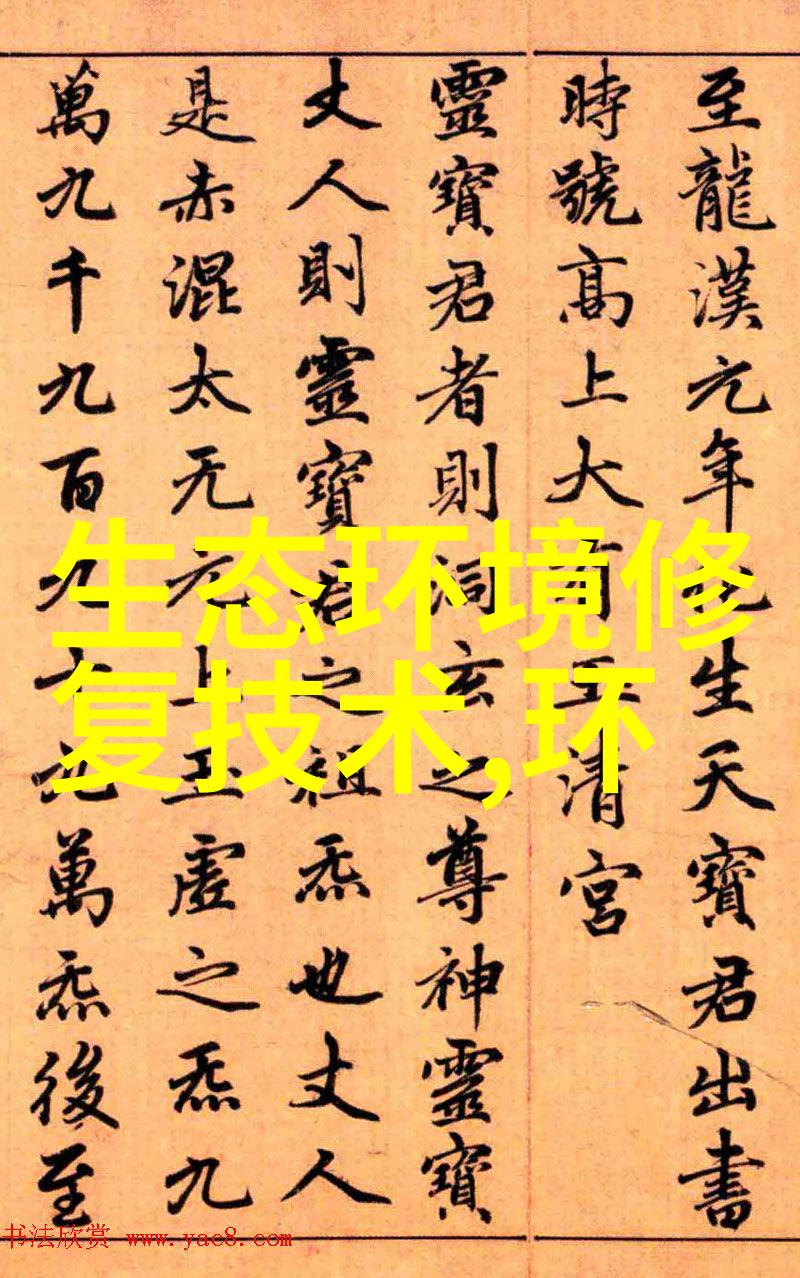 至龍漢元年化生天寶君出書
時號高上大有玉清宮
靈寶君者則洞玄之尊神靈寶
丈人則靈寶君之祖炁也丈人
是赤混太无元上玉虛之炁九
萬九千九百九十九萬炁後至
生态环境修
复技术,环
书法欣赏 www.yac8.com